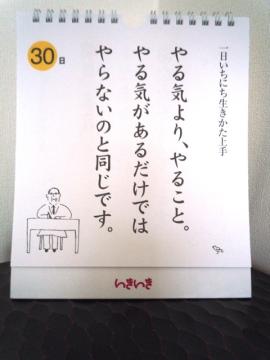 一日いちにち生きかた上手
30日
やる気より、やること。
やる気があるだけでは
やらないのと同じです。
いきいき